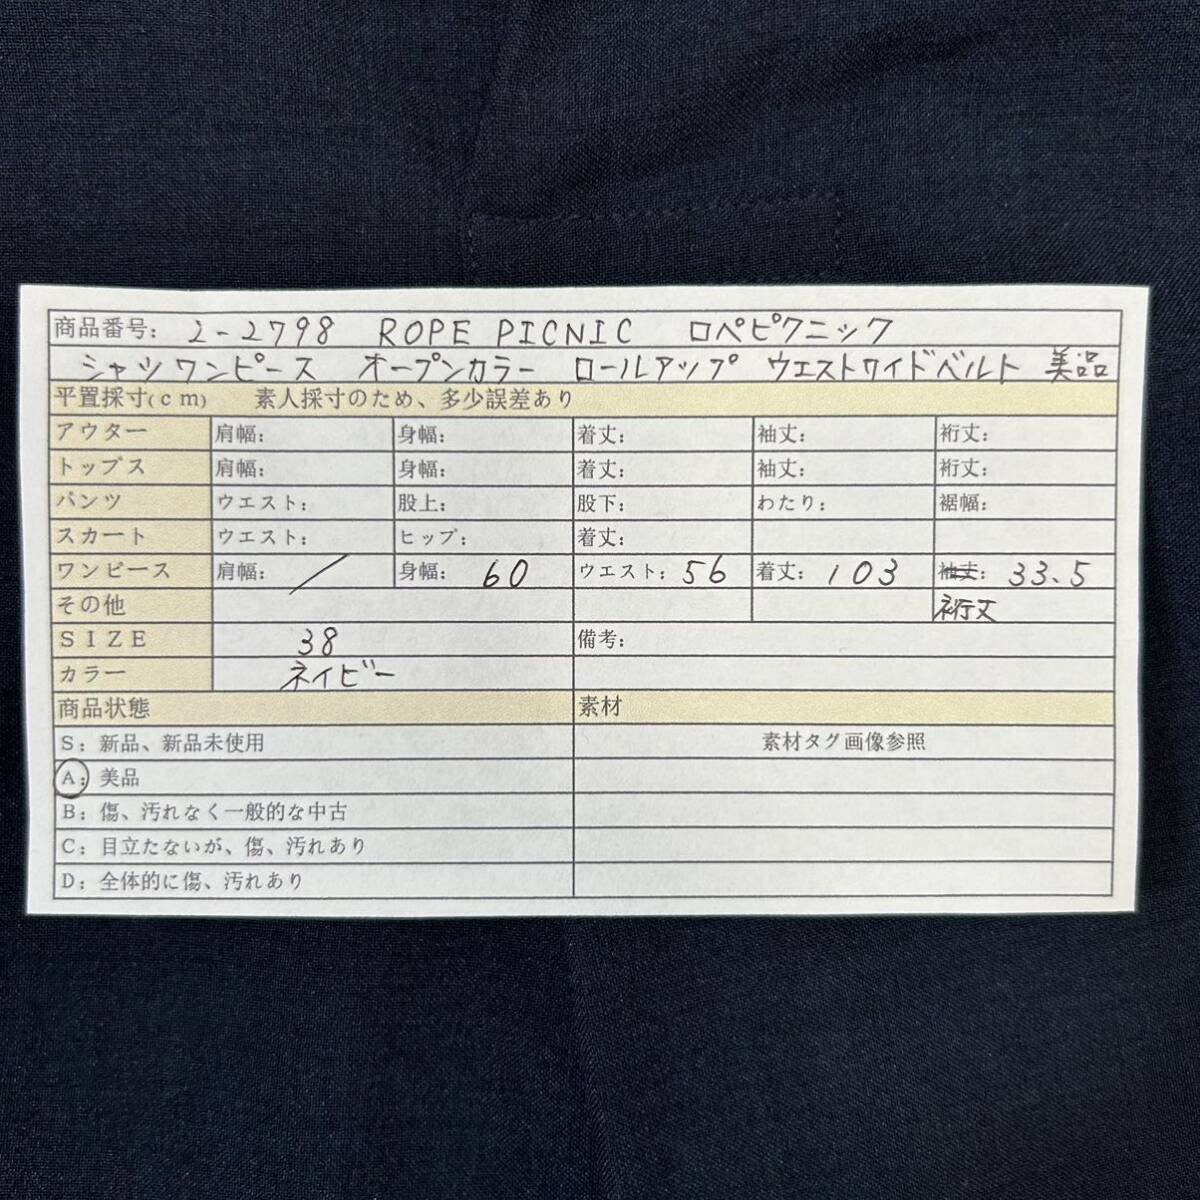 商品番号: 2-2798 ROPE PICNIC ロペピクニック
シャツワンピース オープンカラー ロールアップ ウエストワイドベルト 美品
平置採寸(cm) 素人採寸のため、多少誤差あり
アウター 肩幅: 身幅: 着丈: 袖丈: 裄丈:
トップス 肩幅: 身幅: 着丈: 袖丈: 裄丈:
パンツ ウエスト: 股上: 股下: わたり: 裾幅:
スカート ウエスト: ヒップ: 着丈:
ワンピース 肩幅: / 身幅: 60 ウエスト: 56 着丈: 103 袖丈: 33.5
その他 裄丈
SIZE 38 備考:
カラー ネイビー
商品状態 素材
S: 新品、新品未使用 素材タグ画像参照
A: 美品
B: 傷、汚れなく一般的な中古
C: 目立たないが、傷、汚れあり
D: 全体的に傷、汚れあり